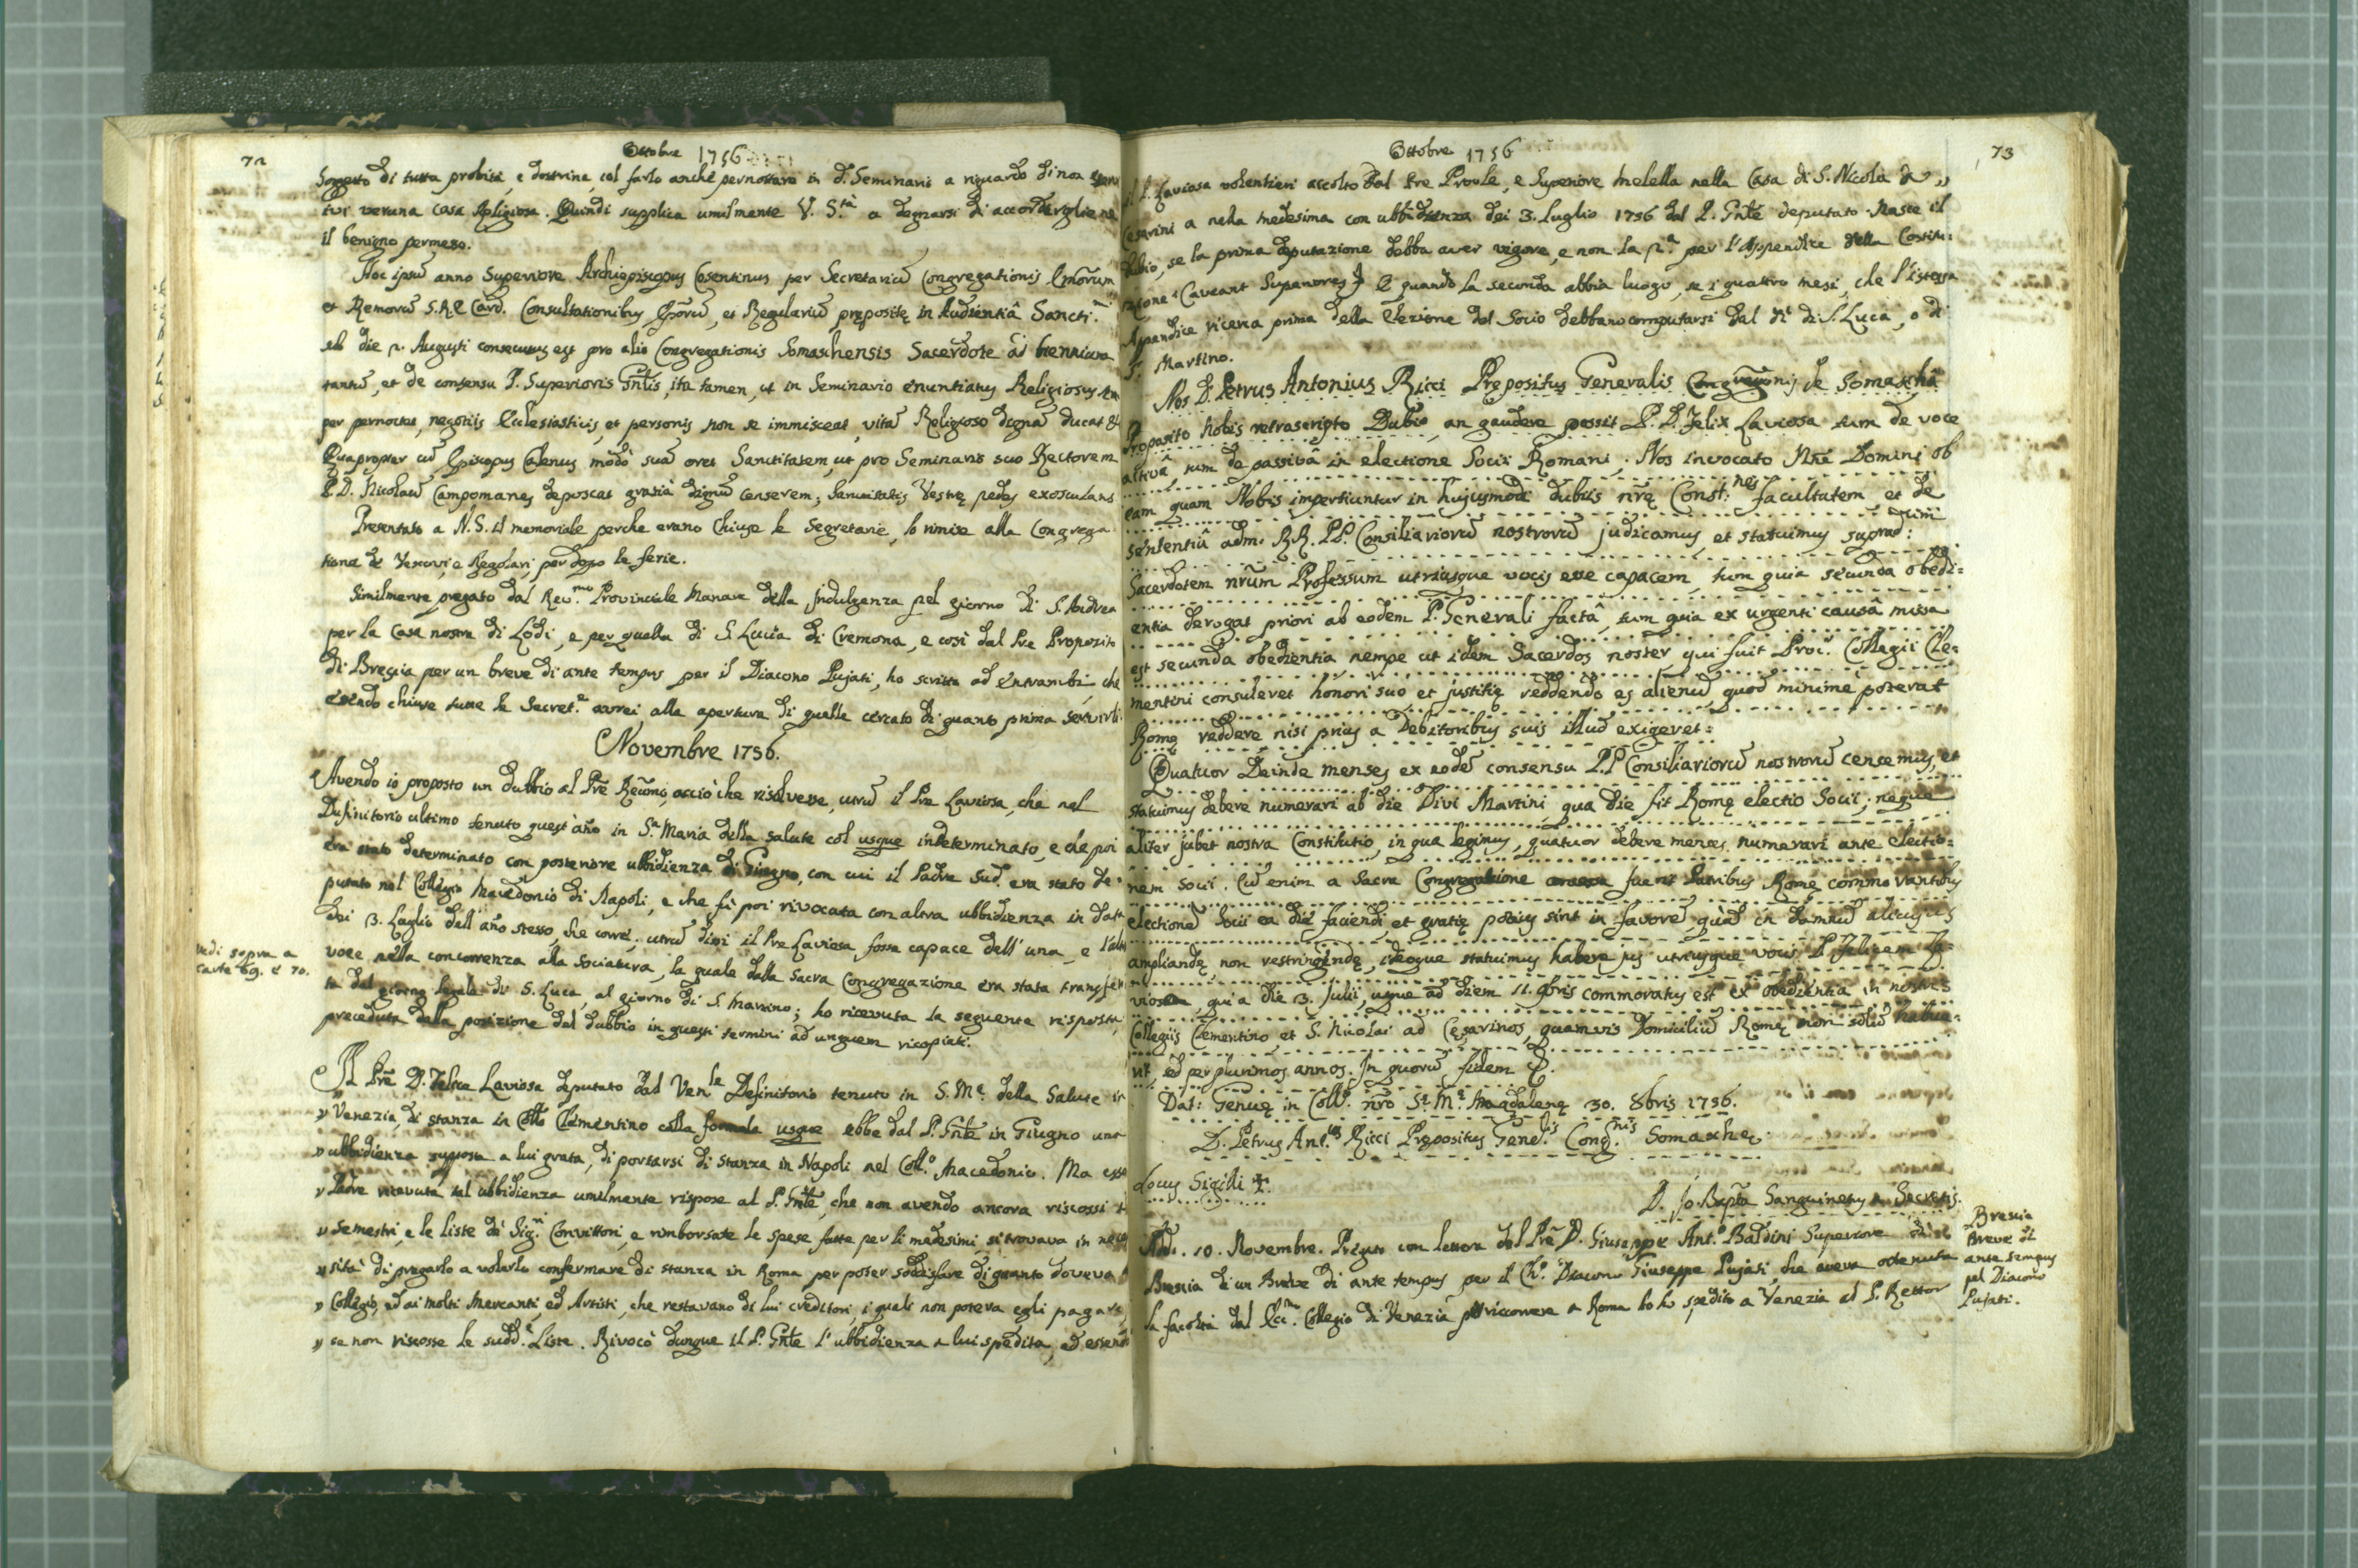 72
Ottobre 1756
Soggetto di tutta probità, e dottrina, col farlo anche pernottare in d.º Seminario a riguardo di non
ivi veruna casa Religiosa. Quindi supplica umilmente V. S.tà a degnarsi di accordargliene
il benigno permesso.
Hoc ipsũ anno Superiore Archiepiscopus Cosentinus per Secretariũ Congregationis
et S.R.E Card. Consultationibus Epõrũ, et Regulariũ prępositę in Audientiâ Sancti.
sub die 2. Augusti consecutus est pro alio Congregationis Somaschensis Sacerdote ad triennium
tantũ, et de consensu P. Superioris Gñlis, ita tamen, ut in Seminario enuntiatus Religiosus
per pernoctet, negotiis Ecclesiasticis, et personis non se immisceat, vitã Religioso dignã ducat &
Quapropter cũ Episcopus modò suã oret Sanctitatem, ut pro Seminario suo Rectorem
P. D. Nicolaũ Campomanes deposcat gratiâ dignũ censerem; Sanctitatis Vestrę pedes exosculans
Presentato a N. S. il memoriale perche erano chiuse le Segretarie, lo rimise alla Congrega
tione de Vescovi, e Regolari, per dopo le ferie.
Similmente pregato dal Rev.mo Provinciale Manara della Indulgenza pel giorno di S. Andrea
per la Casa nostra di Lodi, e per quella di S. Lucia di Cremona, e così dal Pre Proposito
di Brescia per un breve di ante tempus per il Diacono Pujati, ho scritto ad entrambi, che
essendo chiuse tutte le Secret.e avrei alla apertura di quelle cercato di quanto prima servirli.
Novembre 1756.
Avendo io proposto un dubbio al Prẽ Reũmo, acciò che risolvesse, utrũ il Pre Laviosa, che nel
Definitorio ultimo tenuto quest'año in S.a Maria della Salute col usque indeterminato, e da poi
era stato determinato con posteriore ubbidienza di Giugno, con cui il Padre Sud. era stato de-
putato nel Collegio Macedonio di Napoli, e che fù poi rivocata con altra ubbidienza in data
dei 3. Luglio dell'año stesso, che corre; utrũ dissi il Pre Laviosa fosse capace dell'una, e l'altra
vedi sopra a
carte 69. e 70.
voce nella concorrenza alla sociatura, la quale dalla Sacra Congregazione era stata transferi
ta dal giorno legale di S. Luca, al giorno di S. Martino; ho ricevuta la seguente risposta
preceduta dalla posizione del dubbio in questi termini ad unguem ricopiati.
Il Prẽ D. Felice Laviosa deputato dal Ven.le Definitorio tenuto in S. M.a della Salute in
" Venezia, di stanza in Collo Clementino colla formola usque ebbe dal P. Gñle in Giugno una
" ubbidienza supposta a lui grata, di portarsi di stanza in Napoli nel Coll.o Macedonio. Ma esso
" Padre ricevuta tal ubbidienza umilmente rispose al P. Gñle, che non avendo ancora riscossi i
" semestri, e le liste dè Sig.ri Convittori, e rimborsate le spese fatte per li medesimi, si trovava in neces
" sità di pregarlo a volerlo confermare di stanza in Roma per poter soddisfare di quanto doveva
" Collegio, ed ai molti Mercanti, ed Artisti, che restavano di lui creditori, i quali non poteva egli pagare,
" se non riscosse le sudd.e Liste. Rivocò dunque il P. Gñle l'ubbidienza a lui spedita, ed essendo
73
Ottobre 1756
il P. Laviosa volentieri accolto dal Pre Provle, e Superiore Melella nella Casa di S. Nicola de "
Cesarini a nella medesima con ubbidienza dei 3. Luglio 1756 dal P. Gñle deputato. Nasce il
dubio, se la prima deputazione debba aver vigore, e non la 2.a per l'Appendice della Costitu-
zione (Caveant Superiores) E quando la seconda abbia luogo, se i quattro mesi, che l'istessa
Appendice ricerca prima della Elezione del Socio debbano computarsi dal dì di S. Luca, o di
S. Martino.
Nos D. Petrus Antonius Ricci Prępositus Generalis Congregationis de Somaschâ
Proposito Nobis retroscripto Dubio, an gaudere possit P. D. Felix Laviosa tum de voce
activâ, tum de passivâ in electione Socii Romani; Nos invocato Nñe Domini ob
eam quam Nobis impertiuntur in hujusmodi dubiis nrẽ Const.nes facultatem et de
sententiâ adm. RR. PP. Consiliariorũ nostrorũ judicamus, et statuimus suprad:ctum
Sacerdotem nrũm Professum utriusque vocis esse capacem, tum quia secunda obedi-
entia derogat priori ab eodem P. Generali factâ, tum quia ex urgenti causâ missa
est secunda obedientia nempe ut idem Sacerdos noster qui fuit Proc.r Collegii Cle-
mentini consuleret honori suo et justitię reddendo ęs alienũ, quod minimè poterat
Romę reddere nisi prius a Debitoribus suis illud exigeret:
Quatuor Deinde menses ex eodẽ consensu P.P Consiliariorũ nostrorũ censemus, et
statuimus debere numerari ab die Divi Martini, qua die fit Romę electio Socii; neque
aliter jubet nostra Constitutio, in qua legimus, quatuor debere menses numerari ante electio-
nem Socii. Cũ enim a Sacra Congregatione fuerit Patribus Romę commorantibus
electionẽ Socii ea die faciendi, et gratię potius sint in favorẽ, quàm in damnũ alicujus
ampliandę, non restringendę, ideoque statuimus habere jus utriusque vocis P. Felicem La-
viosam, qui a die 3. Julii, usque ad diem 11. 9bris commoratus est ex obedientia in nostris
Collegiis Clementino et S. Nicolai ad Cęsarinos, quamvis Domiciliũ Romę non solũ habue-
rit, sed per plurimos annos. In quorũ fidem &.
Dat: Genuę in Coll.o nrõ S.ę M.ę Magdalenę 30. 8bris 1756.
D. Petrus Ant.us Ricci Prępositus Gene.lis Cong.nis Somaschę
Locus Sigilli ✝.
D. Jo. Bapta Sanguinetus a Secretis.
Adi. 10. Novembre. Pregato con lettera del Prẽ D. Giuseppe Ant.o Baldini Superiore di
Brescia di un Breve di ante tempus per il Ch.o Diacono Giuseppe Pujati, che aveva ottenuta
la facoltà dal Ecc.mo Collegio di Venezia per ricorrere a Roma lo hò spedito a Venezia al P. Rettor
Brescia
Breve di
ante tempus
pel Diacono
Pujati.